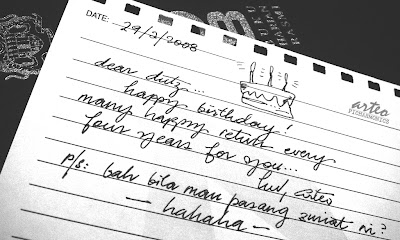 DATE: 29/2/2008
dear dutz...
happy birthday!
many happy return every
four years for you...
luv, arteo
p/s: bah bila mau pasang zuriat ni?
— hahaha —
arteo